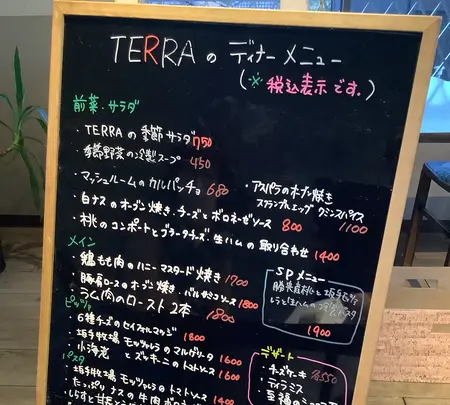 TERRAの ディナーメニュー
(※税込表示です。)
前菜・サラダ
・TERRAの季節サラダ 750
・季節野菜の冷製スープ 450
・マッシュルームのカルパッチョ 680
・アスパラのオーブン焼き
スクランブルエッグ 1100
・白ナスのオーブン焼き・チーズとボロネーゼソース 800
・桃のコンポートとブラータチーズ・生ハムの取り合わせ 1400
メイン
・鶏もも肉のハニーマスタード焼き 1700
・豚肩ロースのオーブン焼き・バルサミコソース 1800
・ラム肉のロースト2本 1800
SPメニュー
1900
ピッツァ
・6種チーズの 1800
・坂手牧場 モッツァレラのマルゲリータ 1600
・小海老とズッキーニのトマトソース 1600
パスタ
・坂手牧場 モッツァレラのトマトソース
・たっぷりナスの牛肉ボロ 1400
デザート
・チーズケーキ 各550
・ティラミス